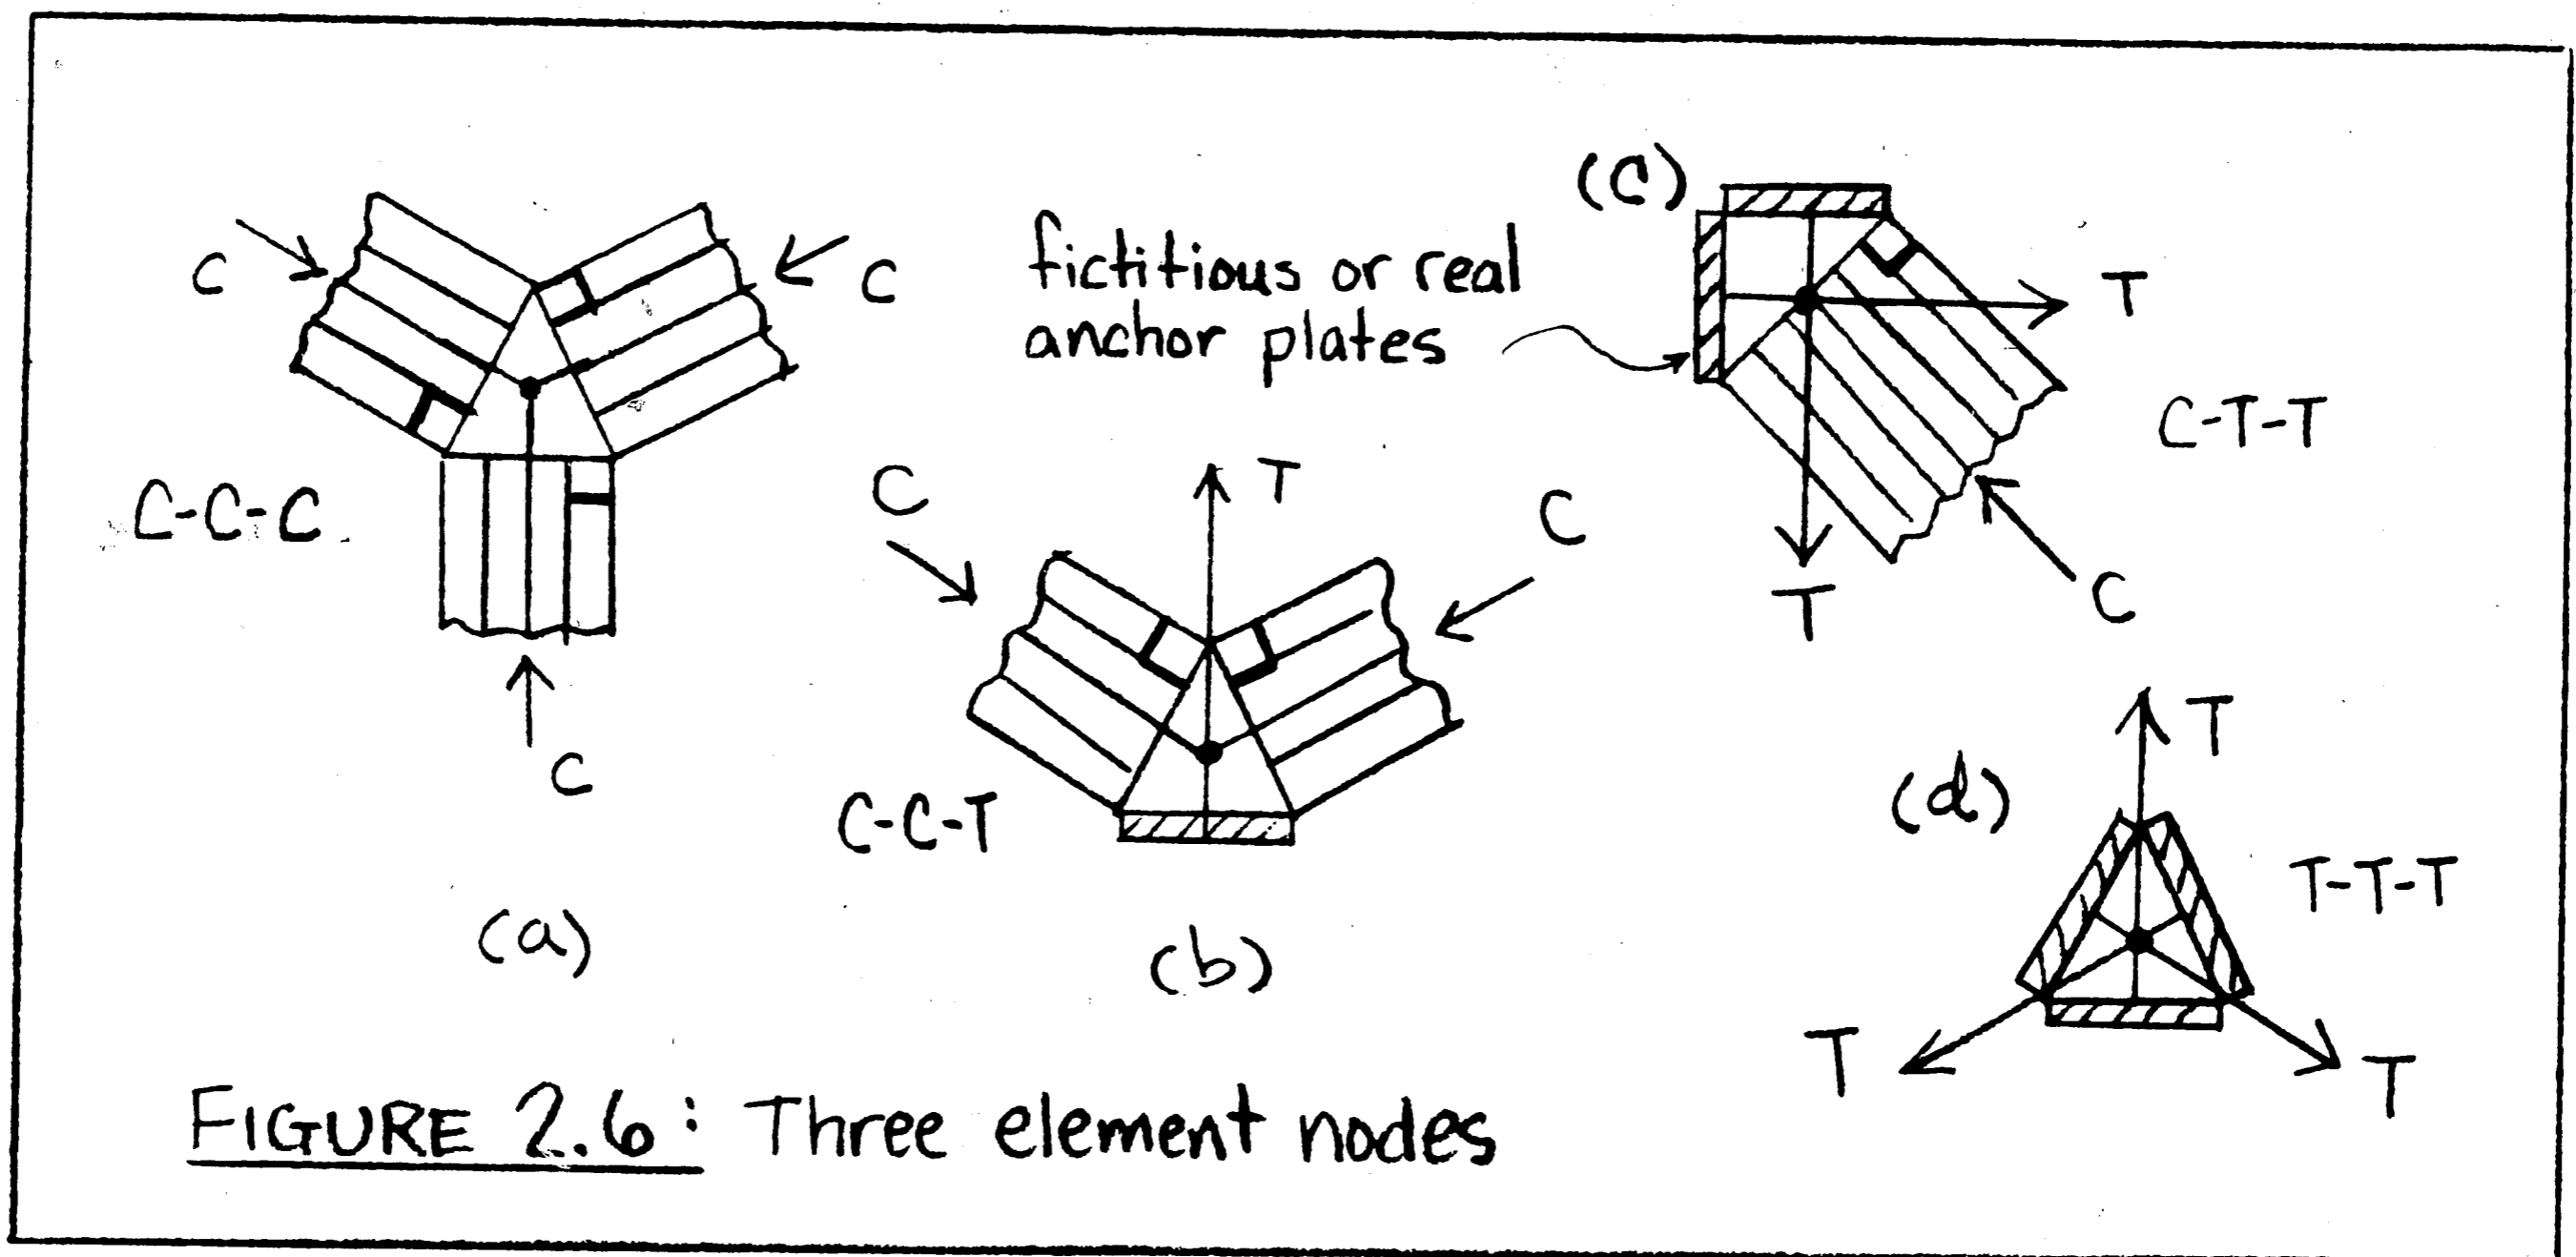 C
C
C-C-C
C
(a)
fictitious or real
anchor plates
C
T
C
C-C-T
(b)
(C)
T
C-T-T
T
C
(d)
T
T-T-T
T
T
FIGURE 2.6: Three element nodes